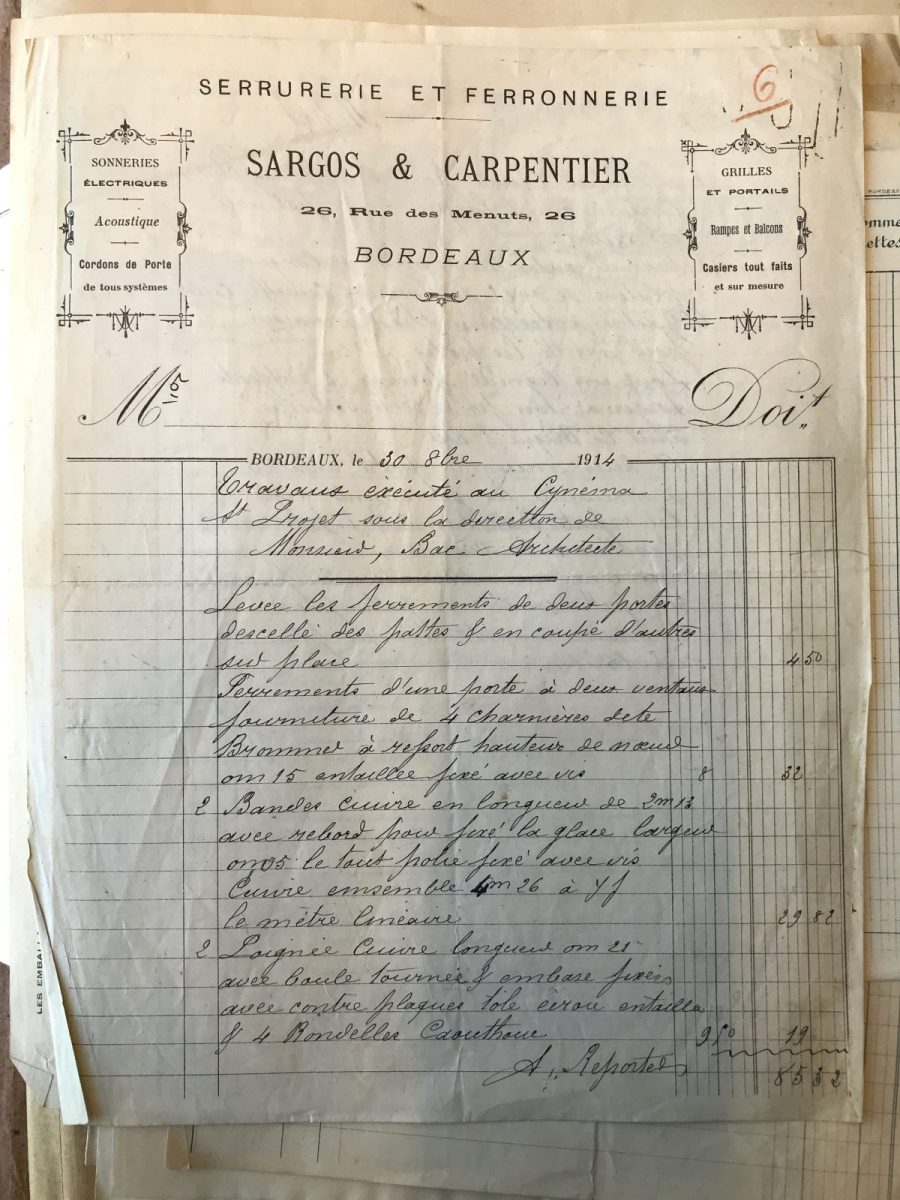 6
SERRURERIE ET FERRONNERIE
SARGOS & CARPENTIER
26, Rue des Menuts, 26
BORDEAUX
SONNERIES
ÉLECTRIQUES
Acoustique
Cordons de Porte
de tous systèmes
GRILLES
ET PORTAILS
Rampes et Balcons
Casiers tout faits
et sur mesure
BORDEAUX
Doit
BORDEAUX, le 30 8bre 1914
Travaux éxécuté au Cynéma
St Projet sous la direction de
Monsieur, Bac Architecte
Levée les ferrements de deux portes
descellé des pattes & en coupé d'autres
sur place 4 50
Ferrements d'une porte à deux ventaux
fourniture de 4 charnières dete
Brommer à ressort hauteur de nœud
0m15 entaillée fixé avec vis 8 32
2 Bandes cuivre en longueur de 2m13
avec rebord pour fixé la glace largeur
0m05 le tout polie fixé avec vis
Cuivre emsemble 4m26 à 7f
le mètre linéaire 29 82
2 Poignée Cuivre longueur 0m21
avec boule tournée & embase fixées
avec contre plaques tôle écrou entaillée
& 4 Rondelles Caouthouc 9 50 19
A, Reporter 85 32
LES EMBAL